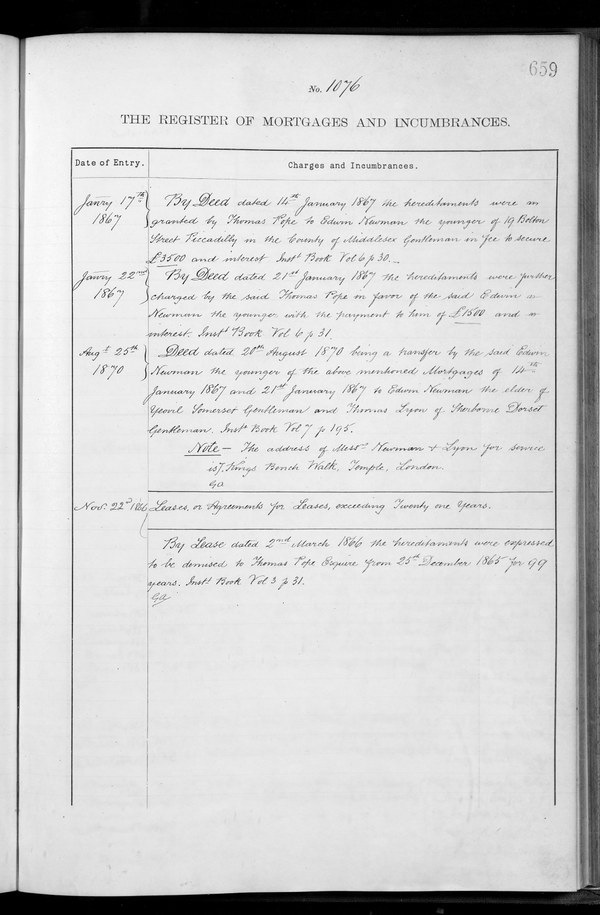 659
No. 1076
THE REGISTER OF MORTGAGES AND INCUMBRANCES.
Date of Entry.
Charges and Incumbrances.
Janry 17th 1867
By Deed dated 14th January 1867 the hereditaments were
granted by Thomas Pope to Edwin Newman the younger of 19 Bolton
Street Piccadilly in the County of Middlesex Gentleman in fee to secure
£3500 and interest Inst. Book Vol 6 p 30.
Janry 22nd 1867
By Deed dated 21st January 1867 the hereditaments were further
charged by the said Thomas Pope in favor of the said Edwin
Newman the younger with the payment to him of £1500 and
interest. Inst. Book Vol 6 p 31.
Augt 25th 1870
Deed dated 20th August 1870 being a transfer by the said Edwin
Newman the younger of the above mentioned Mortgages of 14th
January 1867 and 21st January 1867 to Edwin Newman the elder of
Yeovil Somerset Gentleman and Thomas Lyon of Sherborne Dorset
Gentleman. Inst. Book Vol 7 p 195.
Note – The address of Messrs Newman & Lyon for service
is 7. Kings Bench Walk, Temple, London.
GA
Novr 22d
Leases, or Agreements for Leases, exceeding Twenty one Years.
By Lease dated 2nd March 1866 the hereditaments were expressed
to be demised to Thomas Pope Esquire from 25th December 1865 for 99
years. Inst. Book Vol 3 p 31.
GA